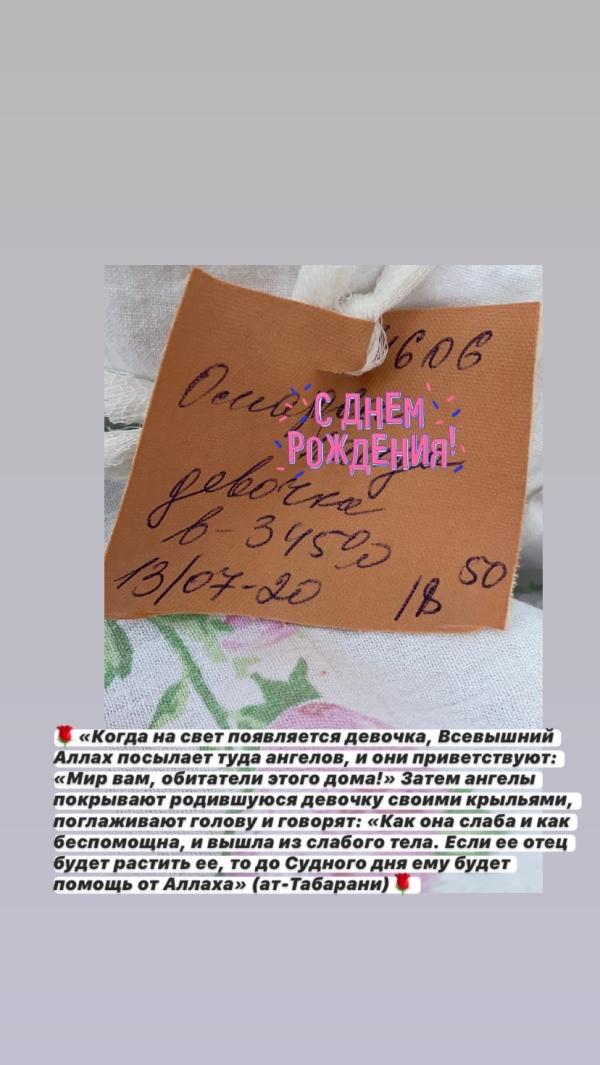 4606
С ДНЕМ
РОЖДЕНИЯ!
девочка
в - 3450,0
13/07-20 18 50
🌹 «Когда на свет появляется девочка, Всевышний
Аллах посылает туда ангелов, и они приветствуют:
«Мир вам, обитатели этого дома!» Затем ангелы
покрывают родившуюся девочку своими крыльями,
поглаживают голову и говорят: «Как она слаба и как
беспомощна, и вышла из слабого тела. Если ее отец
будет растить ее, то до Судного дня ему будет
помощь от Аллаха» (ат-Табарани) 🌹